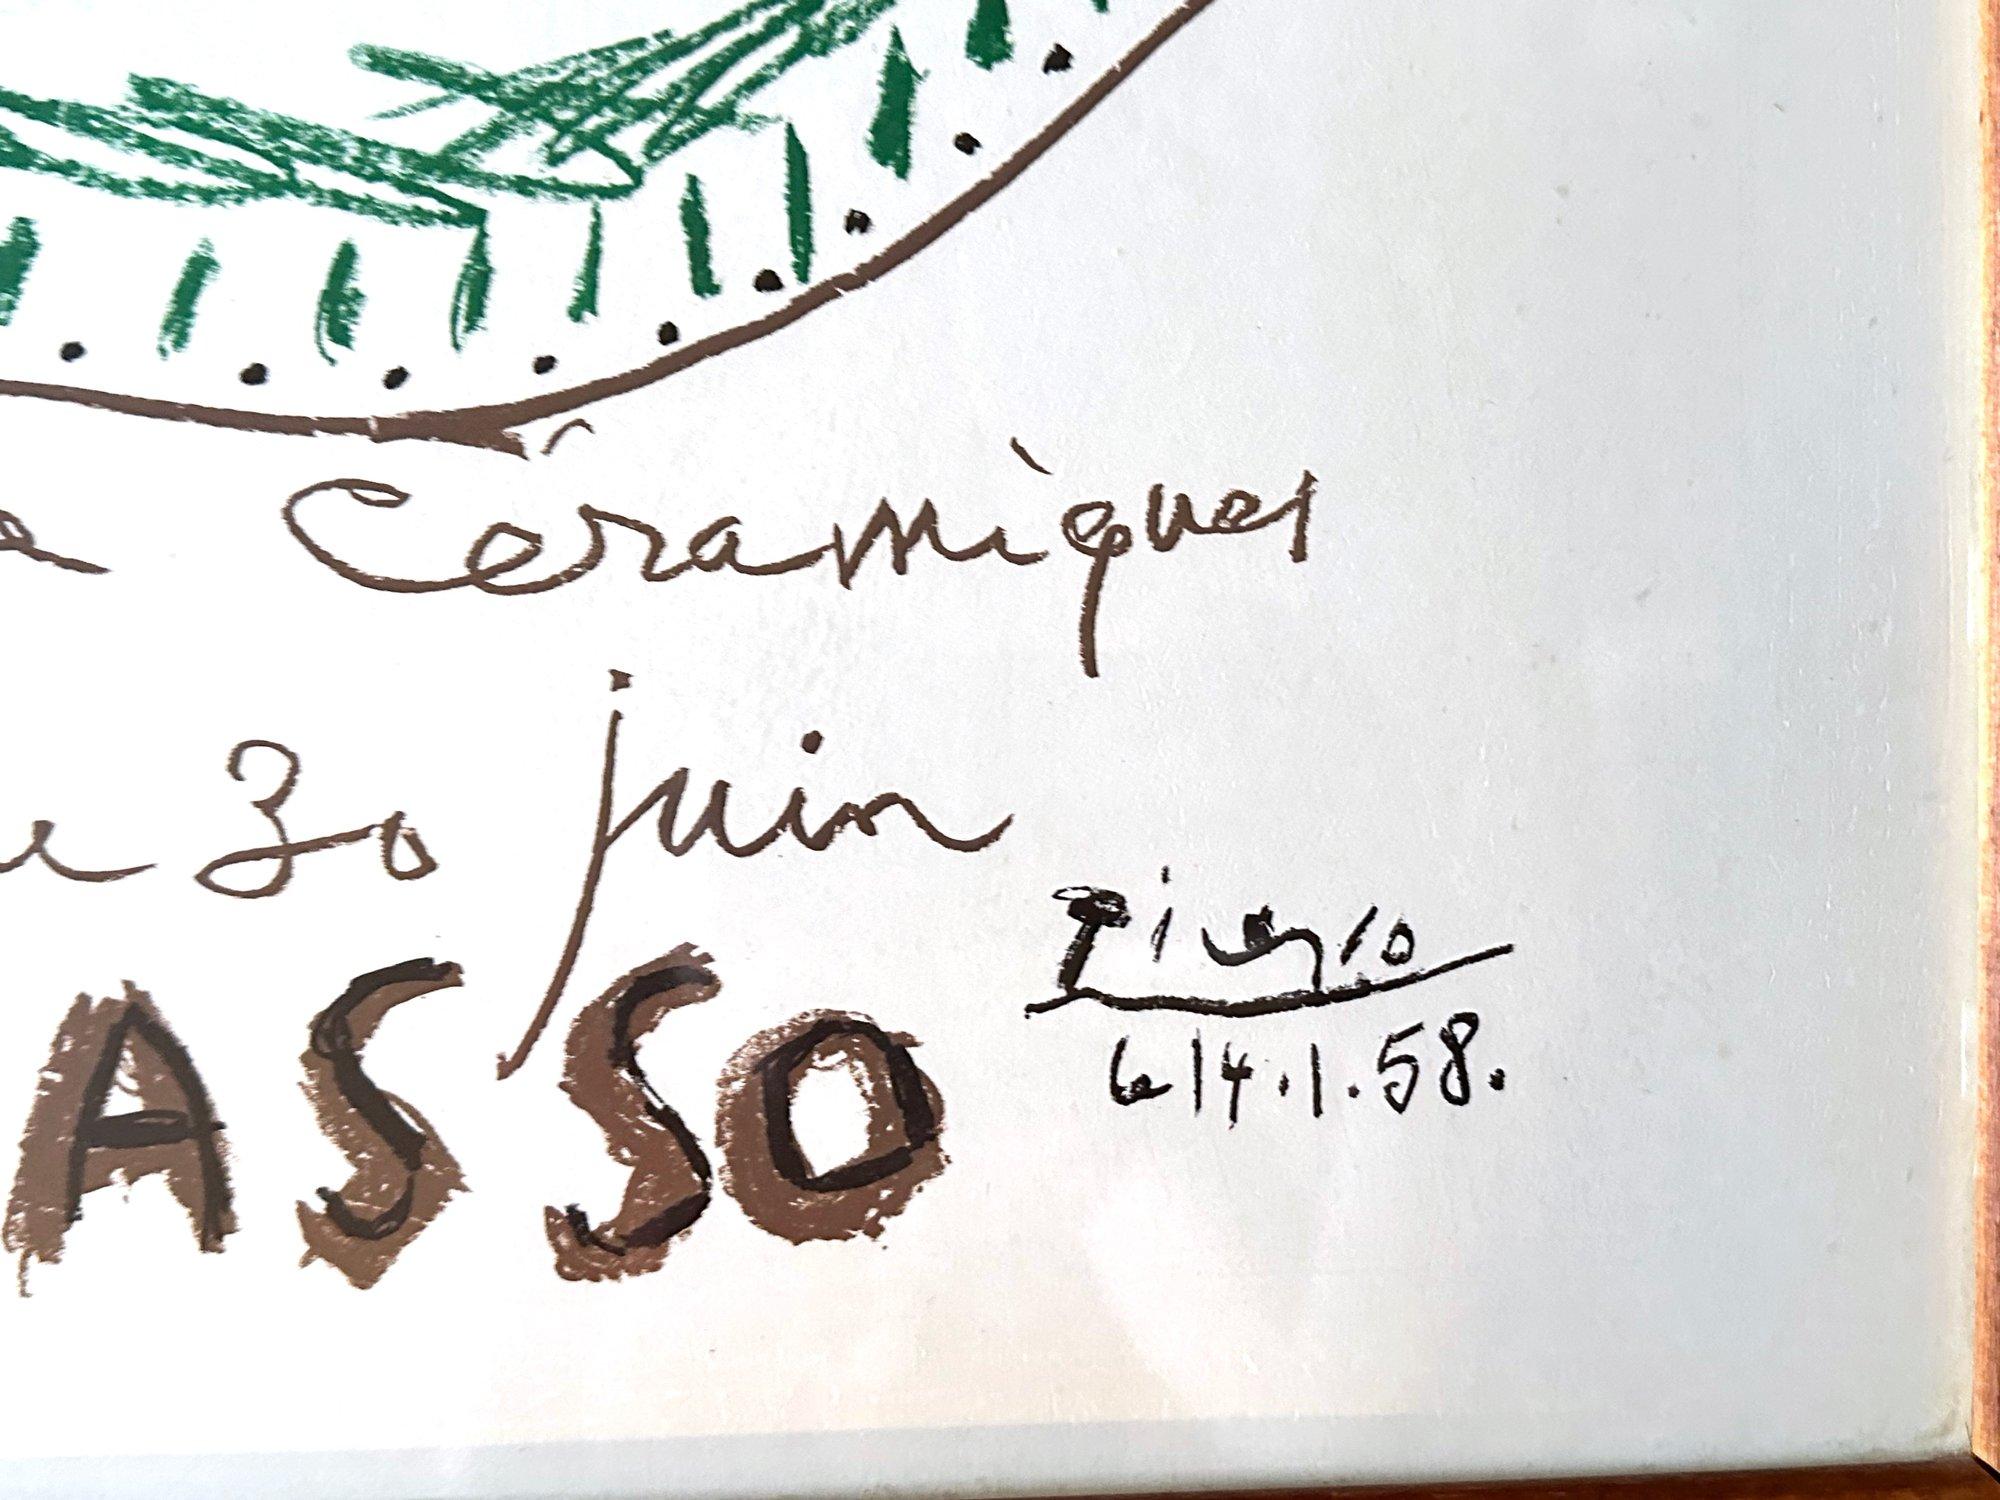 Céramiques
30 juin
ASSO
Picasso
le 14.1.58.